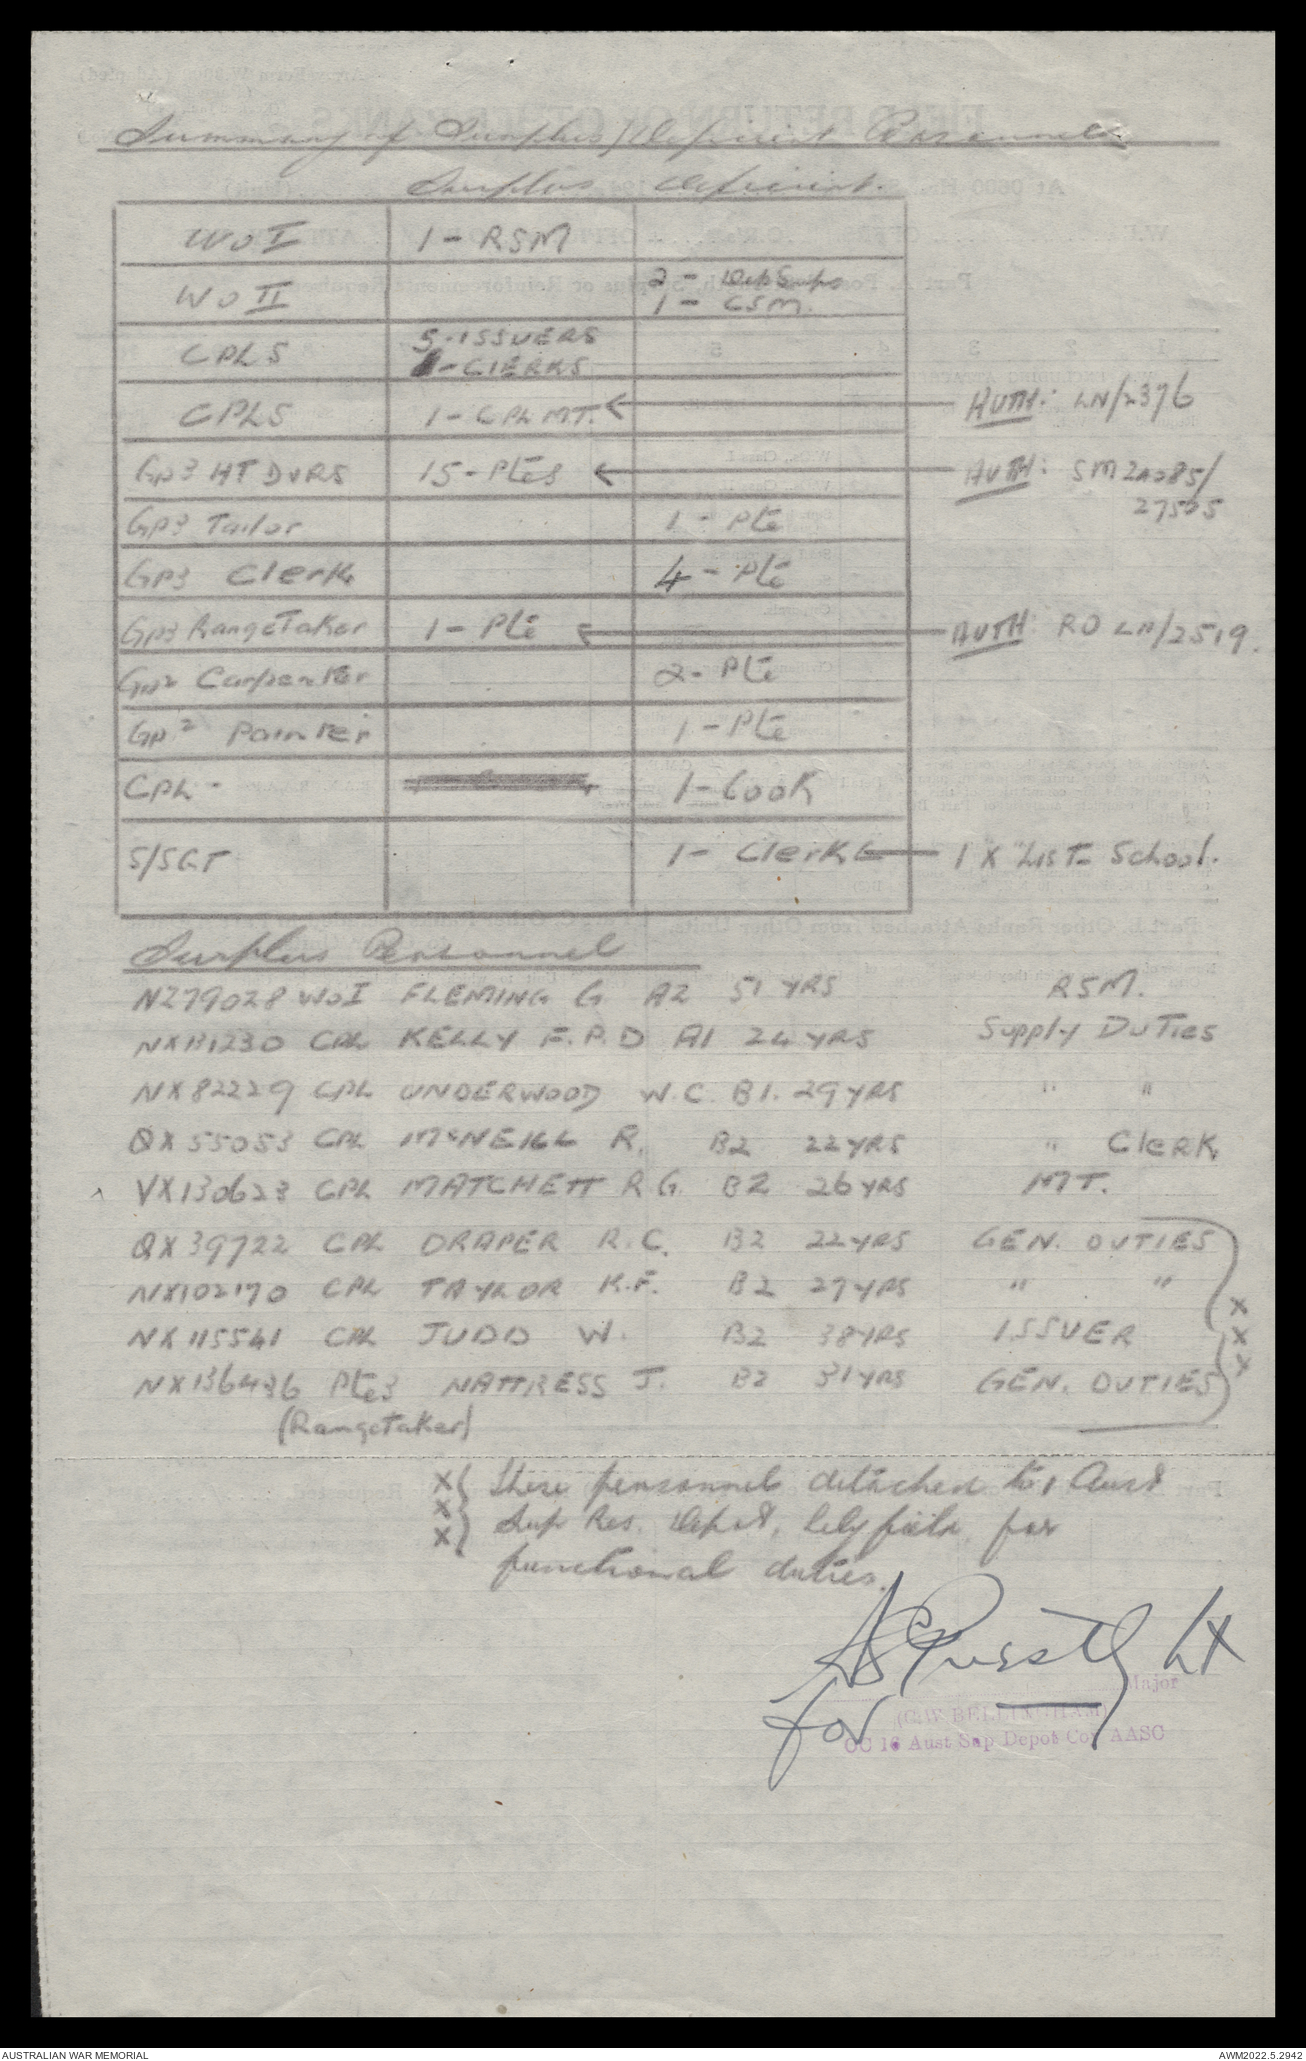 Summary of Surplus/Deficient Personnel
Surplus Deficient.
WO I 1 - RSM
WO II 2 - Dep Sups
1 - CSM.
CPLS 5 - ISSUERS
1 - CLERKS
CPLS 1 - CPL MT. AUTH: LN/2376
Gp3 HT DVRS 15 - Ptes AUTH: SM 2A085/
27505
Gp3 Tailor 1 - Pte
Gp3 Clerk 4 - Pte
Gp3 RangeTaker 1 - Pte AUTH: RO LN/2519.
Gp2 Carpenter 2 - Pte
Gp2 Painter 1 - Pte
CPL - 1 - Cook
S/SGT 1 - Clerk 1 X List School.
Surplus Personnel
N279028 WO I FLEMING G A2 51 YRS RSM.
NX131230 CPL KELLY F.P.D A1 24 YRS Supply Duties
NX82229 CPL UNDERWOOD W.C. B1. 29 YRS " "
QX55053 CPL McNEILL R. B2 22 YRS " Clerk
VX130623 CPL MATCHETT R G. B2 26 YRS MT.
QX39722 CPL DRAPER R.C. B2 22 YRS GEN. DUTIES
NX102170 CPL TAYLOR K.F. B2 27 YRS " "
X
NX115541 CPL JUDD W. B2 38 YRS ISSUER X
X
NX136436 Pte3 NATTRESS J. B2 31 YRS GEN. DUTIES
(RangeTaker)
X these personnel detached to 1 Aust
X Sup Res. Depot, Lilyfield, for
X functional duties.
Lt
for
Major
(C.W. BELLINGHAM)
OC 16 Aust Sup Depot Coy AASC
AUSTRALIAN WAR MEMORIAL AWM2022.5.2942